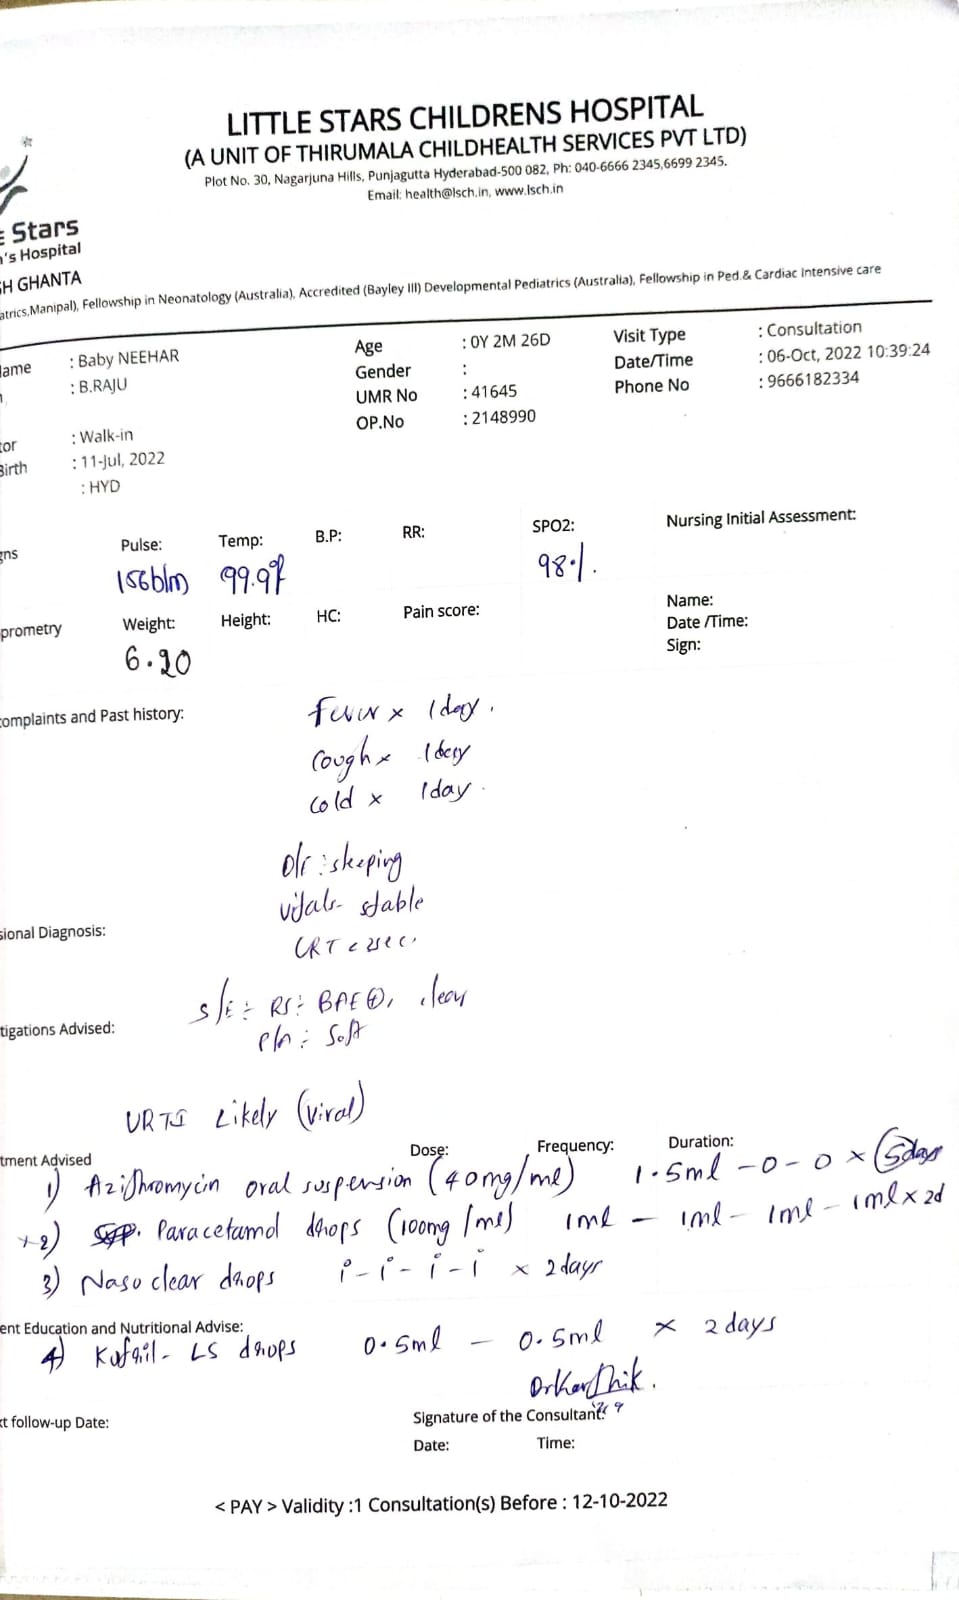 LITTLE STARS CHILDRENS HOSPITAL
(A UNIT OF THIRUMALA CHILDHEALTH SERVICES PVT LTD)
Plot No. 30, Nagarjuna Hills, Punjagutta Hyderabad-500 082, Ph: 040-6666 2345,6699 2345.
Email: health@lsch.in, www.lsch.in
E Stars
n's Hospital
SH GHANTA
atrics,Manipal), Fellowship in Neonatology (Australia), Accredited (Bayley III) Developmental Pediatrics (Australia), Fellowship in Ped.& Cardiac Intensive care
lame : Baby NEEHAR Age : 0Y 2M 26D Visit Type : Consultation
: B.RAJU Gender : Date/Time : 06-Oct, 2022 10:39:24
UMR No : 41645 Phone No : 9666182334
tor : Walk-in OP.No : 2148990
Birth : 11-Jul, 2022
: HYD
gns Pulse: Temp: B.P: RR: SPO2: Nursing Initial Assessment:
156b/m 99.9°f 98%.
prometry Weight: Height: HC: Pain score: Name:
6.20 Date /Time:
Sign:
complaints and Past history: Fever x 1day.
Cough x 1day
cold x 1day.
O/E: sleeping
vitals- stable
sional Diagnosis:
CRT < 2sec.
S/E:- RS:- BAE⊕, clear
tigations Advised:
P/A:- Soft
URTI Likely (Viral)
tment Advised Dose: Frequency: Duration:
1) Azithromycin oral suspension (40mg/ml) 1.5ml - 0 - 0 x 5days
2) Paracetamol drops (100mg/ml) 1ml - 1ml - 1ml - 1ml x 2d
3) Nasoclear drops i - i - i - i x 2days
ent Education and Nutritional Advise:
4) Kufril- LS drops 0.5ml - 0.5ml x 2days
Dr Karthik.
xt follow-up Date: Signature of the Consultant:
Date: Time:
< PAY > Validity :1 Consultation(s) Before : 12-10-2022